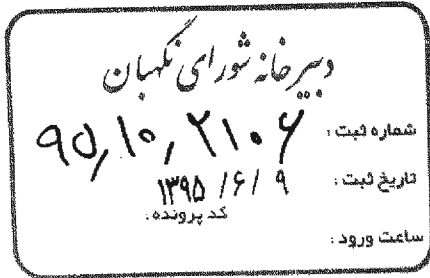 دبیرخانه شورای نگهبان
شماره ثبت : ۹۵٫۱۰٫۲۱۰۶
تاریخ ثبت : ۱۳۹۵/۶/۹
کد پرونده:
ساعت ورود :